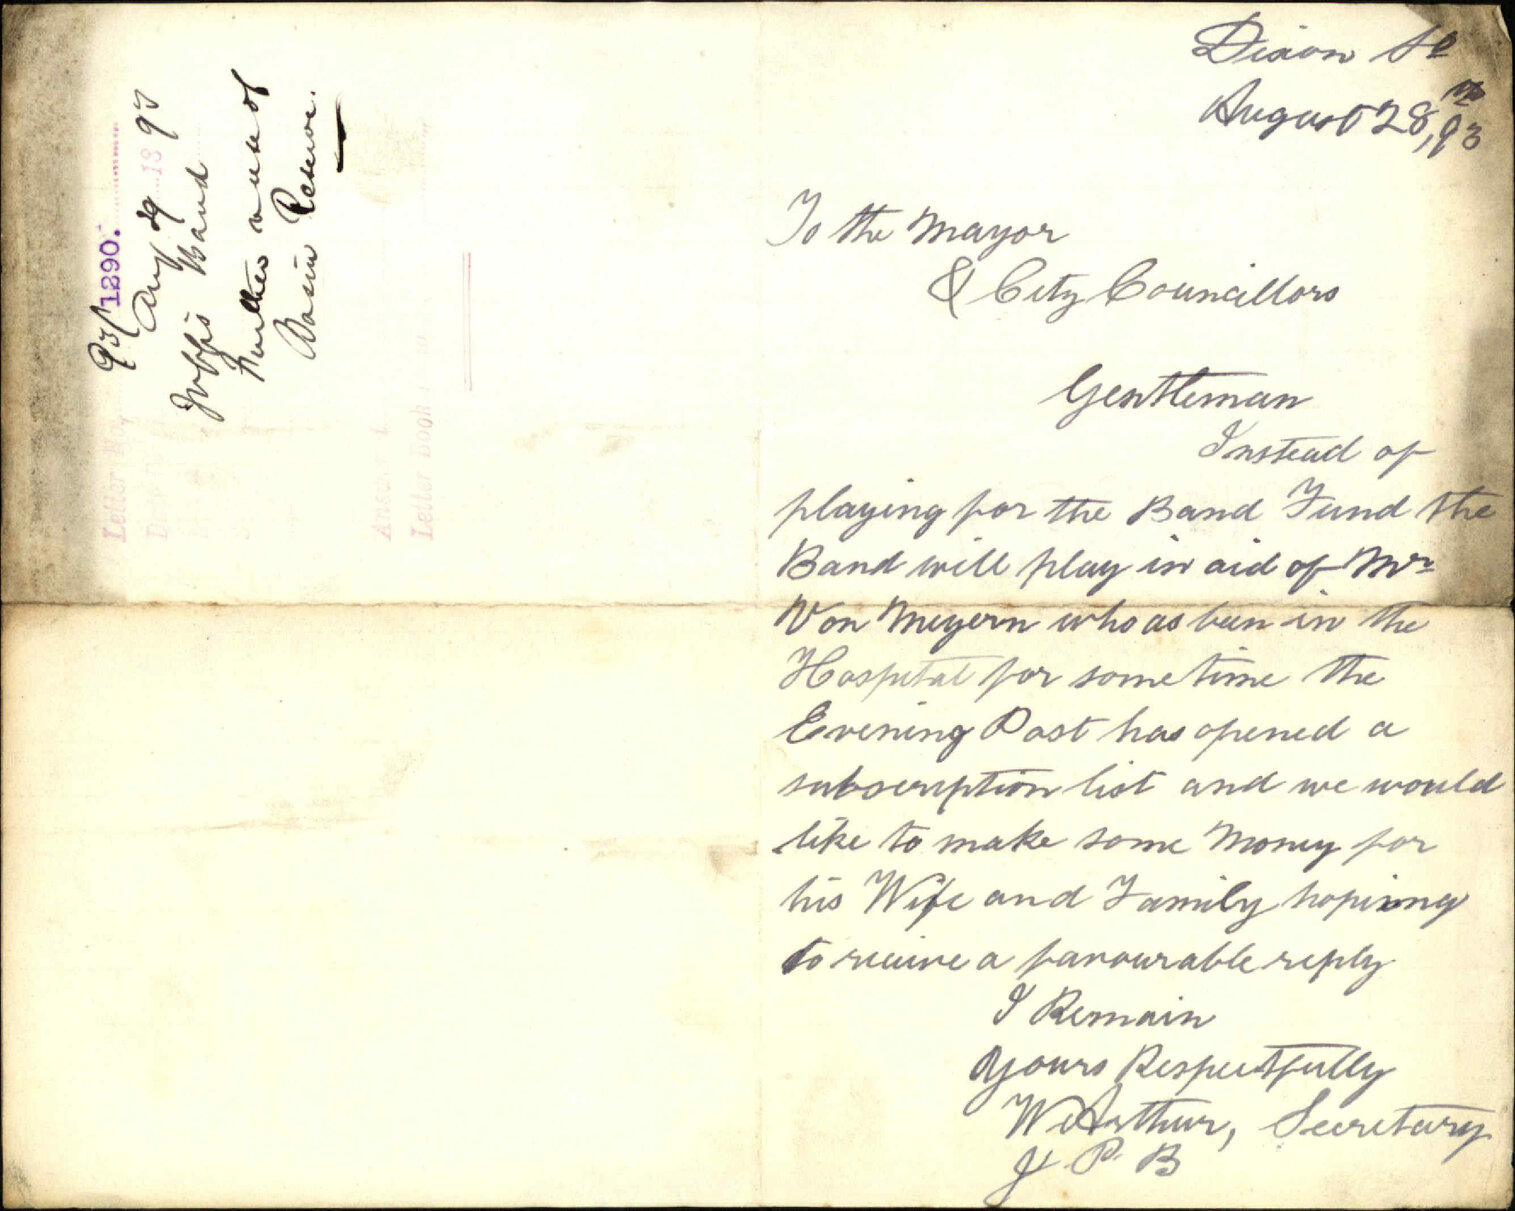 Dixon St
August 28th, 93
To the Mayor
& City Councillors
Gentleman
Instead of
playing for the Band Fund the
Band will play in aid of Mr
Von Meyern who as been in the
Hospital for some time the
Evening Post has opened a
subscription list and we would
like to make some Money for
his Wife and Family hopinng
to recieve a favourable reply
I Remain
Yours Respectfully
W Arthur, Secretary
J P B
93/1290.
Aug 29 1893
Jupp's Band
Further use of
Basin Reserve.
Letter No.
Letter Book